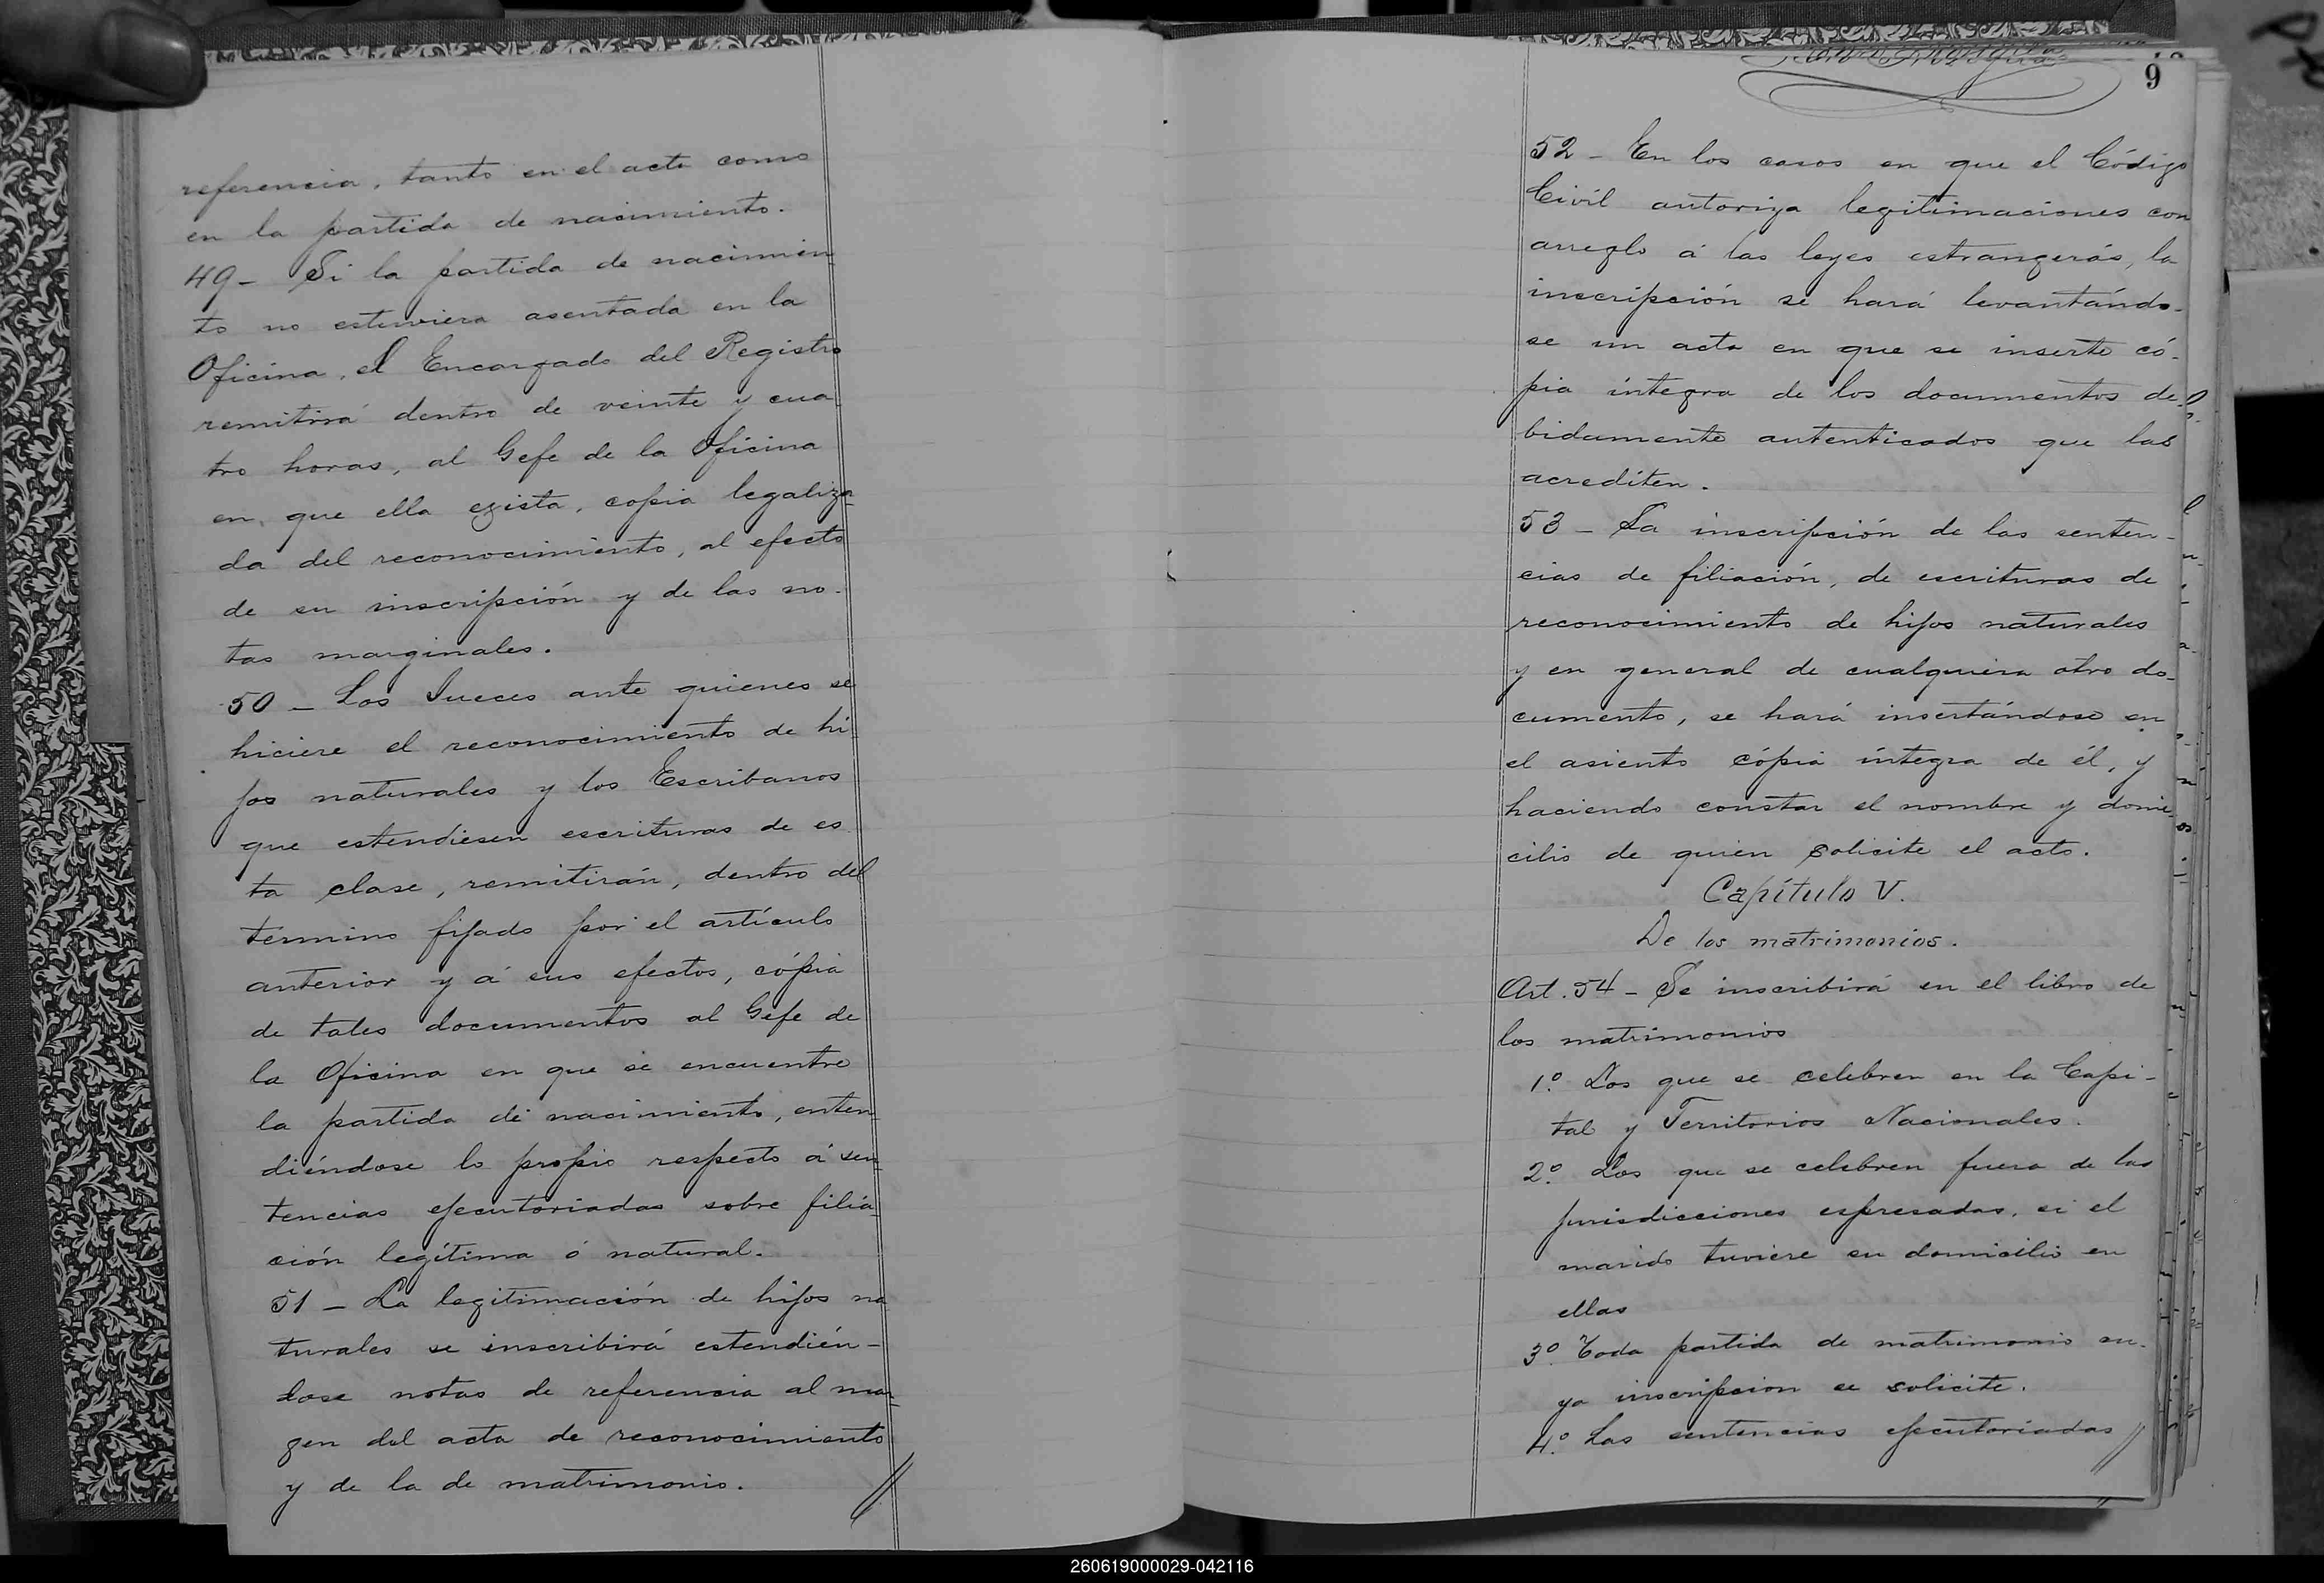 referencia, tanto en el acta como
en la partida de nacimiento.
49 - Si la partida de nacimien
to no estuviera asentada en la
Oficina, el Encargado del Registro
remitirá dentro de veinte y cua
tro horas, al Gefe de la Oficina
en que ella exista, copia legaliza-
da del reconocimiento, al efecto
de su inscripción y de las no-
tas marginales.
50 - Los Jueces ante quienes se
hiciere el reconocimiento de hi
jos naturales y los Escribanos
que estendiesen escrituras de es
ta clase, remitirán, dentro del
termino fijado por el artículo
anterior y á sus efectos, cópia
de tales documentos al Gefe de
la Oficina en que se encuentre
la partida de nacimiento, enten
diéndose lo propio respecto á sen
tencias ejecutoriadas sobre filia
ción legítima ó natural.
51 - La legitimación de hijos na
turales se inscribirá estendién-
dose notas de referencia al mar-
gen del acta de reconocimiento
y de la de matrimonio.
9
52 - En los casos en que el Código
Civil autoriza legitimaciones con
arreglo á las leyes estrangeras, la
inscripción se hará levantándo-
se un acta en que se inserte có-
pia íntegra de los documentos de-
bidamente autenticados que las
acrediten.
53 - La inscripción de las senten-
cias de filiación, de escrituras de
reconocimiento de hijos naturales
y en general de cualquiera otro do-
cumento, se hará insertándose en
el asiento cópia íntegra de él, y
haciendo constar el nombre y domi-
cilio de quien solicite el acto.
Capítulo V.
De los matrimonios.
Art. 54 - Se inscribirá en el libro de
los matrimonios
1.º Los que se celebren en la Capi-
tal y Territorios Nacionales.
2.º Los que se celebren fuera de las
jurisdicciones espresadas, si el
marido tuviere su domicilio en
ellas
3.º Toda partida de matrimonio cu-
ya inscripcion se solicite.
4.º Las sentencias ejecutoriadas
260619000029-042116